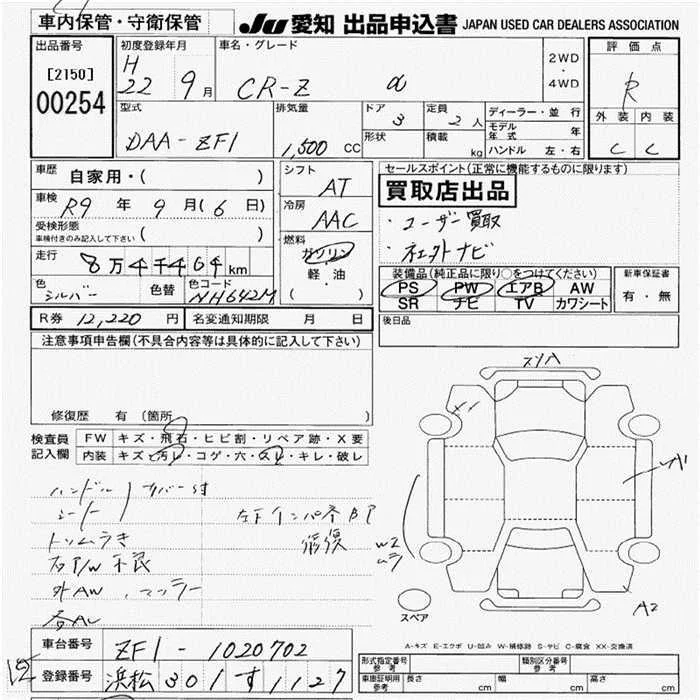 車内保管・守衛保管
JU 愛知 出品申込書 JAPAN USED CAR DEALERS ASSOCIATION
出品番号
[2150]
00254
初度登録年月
H
22 9月
車名・グレード
CR-Z α
2WD
・
4WD
評価点
R
外装 内装
C C
型式
DAA-ZF1
排気量
1,500 CC
ドア 3
形状
定員 2人
積載 kg
ディーラー・並行
モデル年式 年
ハンドル 左・右
車歴
自家用・( )
車検
R9 年 9月(6日)
受検形態
車検付きのみ記入して下さい ( )
走行
8万4千464km
色
シルバー
色替
色コード
NH642M
シフト
AT
冷房
AAC
燃料
ガソリン
軽・油
( )
セールスポイント(正常に機能するものに限ります)
買取店出品
・ユーザー買取
・社外ナビ
装備品(純正品に限り○をつけてください)
PS PW エアB AW
SR ナビ TV カワシート
新車保証書
有・無
R券 12,220円 名変通知期限 月 日
後日品
注意事項申告欄(不具合内容等は具体的に記入して下さい)
修復歴 有(箇所 )
検査員
記入欄
FW キズ・飛石・ヒビ割・リペア跡・X要
内装 キズ・汚レ・コゲ・穴・スレ・キレ・破レ
ハンドル カバー付
シート
トリムうき
右P/W不良
外AW、マフラー
修復
A2
スペア
A-キズ E-エクボ U-凹み W-補修跡 S-サビ C-腐食 XX-交換済
車台番号 ZF1-1020702
登録番号 浜松301す1127
形式指定番号
参考
類別区分番号
参考
車庫証明用
参考
長さ cm 幅 cm 高さ cm